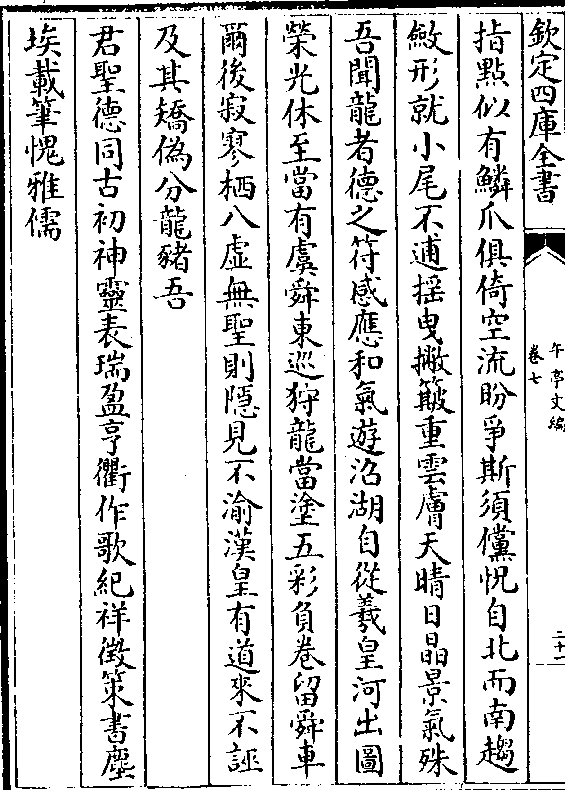 欽定四庫全書
午亭文編
卷七
二十一
指㸃似有鱗爪俱倚空流盼爭斯須儻怳自北而南趨
斂形就小尾不逋揺曳撇簸重雲膚天晴日晶景氣殊
吾聞龍者德之符感應和氣遊沼湖自從羲皇河出圖
榮光休至當有虞舜東巡狩龍當塗五彩負卷留舜車
爾後寂寥栖八虛無聖則隱見不渝漢皇有道來不誣
及其矯偽分龍豬吾
君聖德同古初神靈表瑞盈亨衢作歌紀祥徵策書塵
埃載筆愧雅儒